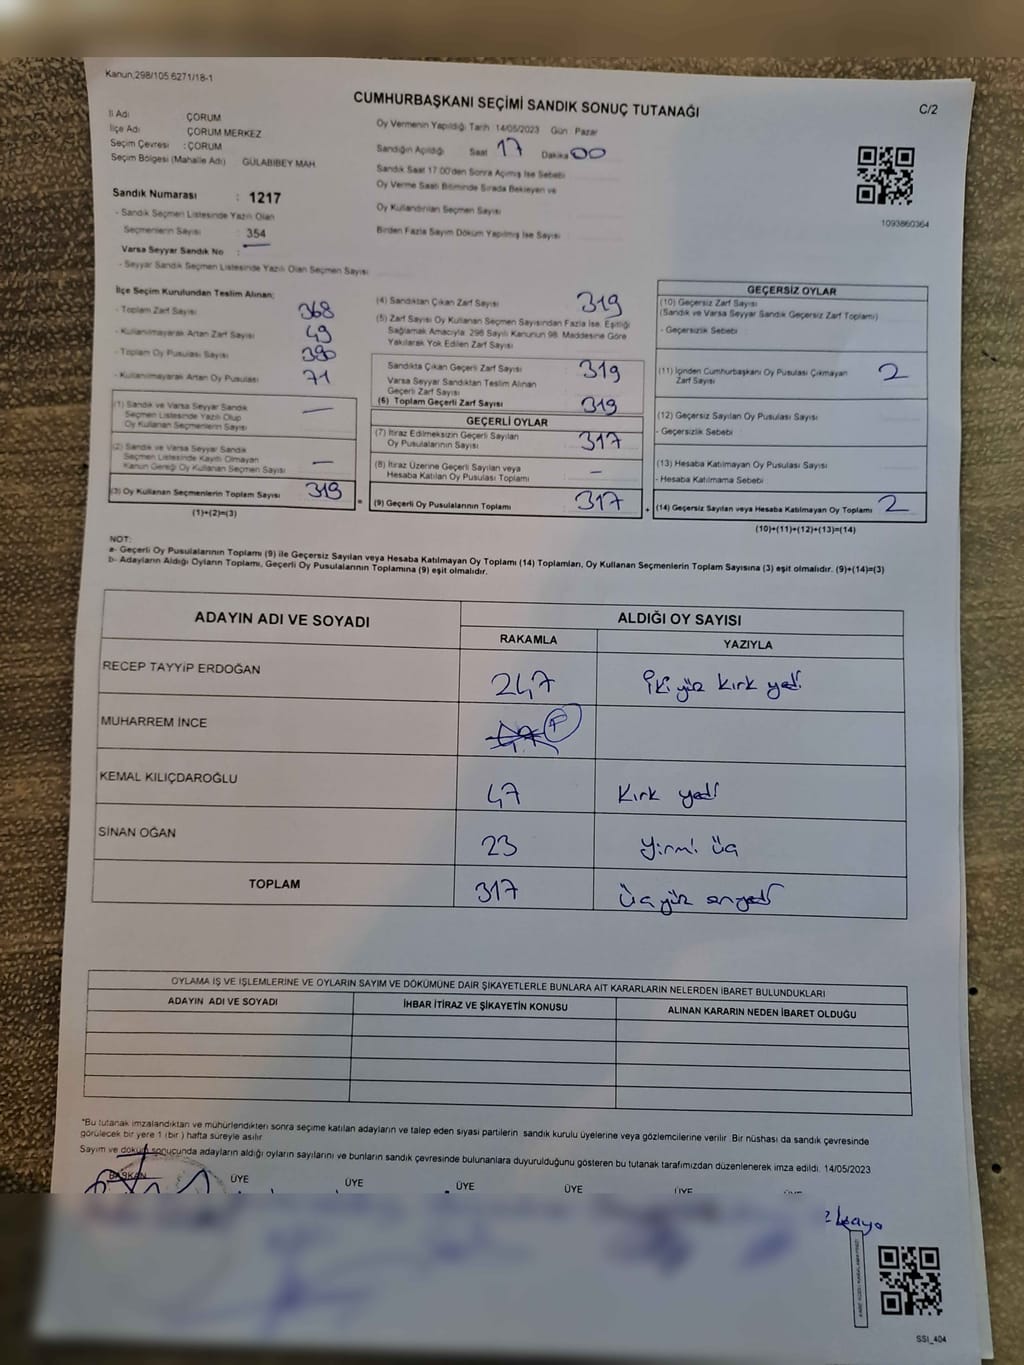 Kanun,298/105.6271/18-1
CUMHURBAŞKANI SEÇİMİ SANDIK SONUÇ TUTANAĞI
C/2
İl Adı ÇORUM
İlçe Adı ÇORUM MERKEZ
Seçim Çevresi : ÇORUM
Seçim Bölgesi (Mahalle Adı) GÜLABİBEY MAH.
Oy Vermenin Yapıldığı Tarih : 14/05/2023 Gün : Pazar
Sandığın Açıldığı Saat 17 Dakika 00
Sandık Saat 17.00'den Sonra Açımış İse Sebebi
Oy Verme Saati Bitiminde Sırada Bekleyen ve
Oy Kullandırılan Seçmen Sayısı
Birden Fazla Sayım Döküm Yapılmış İse Sayısı
1093860364
Sandık Numarası : 1217
- Sandık Seçmen Listesinde Yazılı Olan
Seçmenlerin Sayısı : 354
Varsa Seyyar Sandık No :
- Seyyar Sandık Seçmen Listesinde Yazılı Olan Seçmen Sayısı
İlçe Seçim Kurulundan Teslim Alınan;
- Toplam Zarf Sayısı 368
- Kullanılmayarak Artan Zarf Sayısı 49
- Toplam Oy Pusulası Sayısı 390
- Kullanılmayarak Artan Oy Pusulası 71
(1) Sandık ve Varsa Seyyar Sandık
Seçmen Listesinde Yazılı Olup
Oy Kullanan Seçmenlerin Sayısı —
(2) Sandık ve Varsa Seyyar Sandık
Seçmen Listesinde Kayıtlı Olmayan
Kanun Gereği Oy Kullanan Seçmen Sayısı —
(3) Oy Kullanan Seçmenlerin Toplam Sayısı 319
(1)+(2)=(3)
(4) Sandıktan Çıkan Zarf Sayısı 319
(5) Zarf Sayısı Oy Kullanan Seçmen Sayısından Fazla İse, Eşitliği
Sağlamak Amacıyla; 298 Sayılı Kanunun 98. Maddesine Göre
Yakılarak Yok Edilen Zarf Sayısı
Sandıkta Çıkan Geçerli Zarf Sayısı : 319
Varsa Seyyar Sandıktan Teslim Alınan
Geçerli Zarf Sayısı
(6) Toplam Geçerli Zarf Sayısı : 319
GEÇERLİ OYLAR
(7) İtiraz Edilmeksizin Geçerli Sayılan
Oy Pusulalarının Sayısı : 317
(8) İtiraz Üzerine Geçerli Sayılan veya
Hesaba Katılan Oy Pusulası Toplamı : —
(9) Geçerli Oy Pusulalarının Toplamı : 317
GEÇERSİZ OYLAR
(10) Geçersiz Zarf Sayısı
(Sandık ve Varsa Seyyar Sandık Geçersiz Zarf Toplamı)
- Geçersizlik Sebebi
(11) İçinden Cumhurbaşkanı Oy Pusulası Çıkmayan
Zarf Sayısı : 2
(12) Geçersiz Sayılan Oy Pusulası Sayısı :
- Geçersizlik Sebebi
(13) Hesaba Katılmayan Oy Pusulası Sayısı :
- Hesaba Katılmama Sebebi
(14) Geçersiz Sayılan veya Hesaba Katılmayan Oy Toplamı : 2
(10)+(11)+(12)+(13)=(14)
NOT:
a- Geçerli Oy Pusulalarının Toplamı (9) ile Geçersiz Sayılan veya Hesaba Katılmayan Oy Toplamı (14) Toplamları, Oy Kullanan Seçmenlerin Toplam Sayısına (3) eşit olmalıdır. (9)+(14)=(3)
b- Adayların Aldığı Oyların Toplamı, Geçerli Oy Pusulalarının Toplamına (9) eşit olmalıdır.
ADAYIN ADI VE SOYADI ALDIĞI OY SAYISI
RAKAMLA YAZIYLA
RECEP TAYYİP ERDOĞAN 247 iki yüz kırk yedi
MUHARREM İNCE
KEMAL KILIÇDAROĞLU 47 Kırk yedi
SİNAN OĞAN 23 yirmi üç
TOPLAM 317 üç yüz onyedi
OYLAMA İŞ VE İŞLEMLERİNE VE OYLARIN SAYIM VE DÖKÜMÜNE DAİR ŞİKAYETLERLE BUNLARA AİT KARARLARIN NELERDEN İBARET BULUNDUKLARI
ADAYIN ADI VE SOYADI İHBAR İTİRAZ VE ŞİKAYETİN KONUSU ALINAN KARARIN NEDEN İBARET OLDUĞU
"Bu tutanak imzalandıktan ve mühürlendikten sonra seçime katılan adayların ve talep eden siyasi partilerin sandık kurulu üyelerine veya gözlemcilerine verilir. Bir nüshası da sandık çevresinde
görülecek bir yere 1 (bir) hafta süreyle asılır.
Sayım ve döküm sonucunda adayların aldığı oyların sayılarını ve bunların sandık çevresinde bulunanlara duyurulduğunu gösteren bu tutanak tarafımızdan düzenlenerek imza edildi. 14/05/2023
BAŞKAN ÜYE ÜYE ÜYE ÜYE ÜYE
SSİ_404